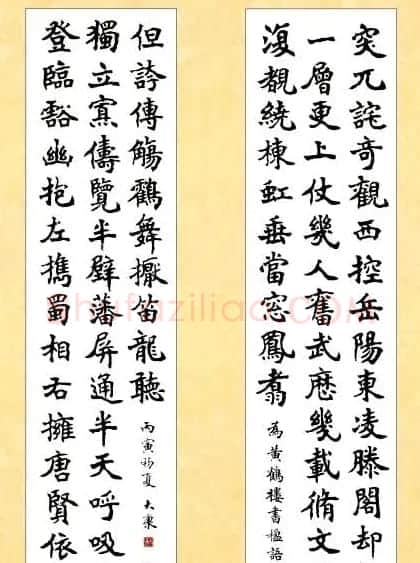 突兀詫奇觀西控岳陽東凌滕閣却
一層更上仗幾人奮武歷幾載脩文
復覩繞棟虹垂當窓鳳翥
為黃鶴樓書楹語
登臨豁幽抱左携蜀相右擁唐賢依
獨立寡儔覽半壁藩屏通半天呼吸
但誇傳觴鸖舞擫笛龍聽
丙寅初夏 大康
Shufaziliao.COM